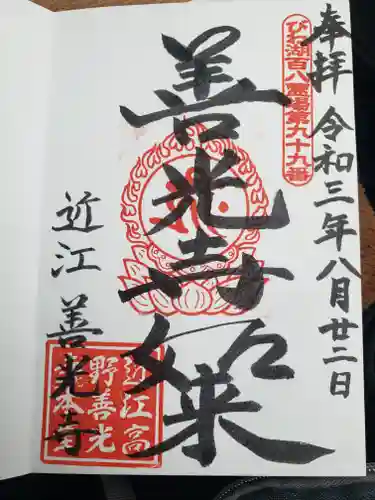 奉拝
令和三年八月廿二日
びわ湖百八霊場第九十九番
善光寺如来
近江
善光寺
近江高
野善光